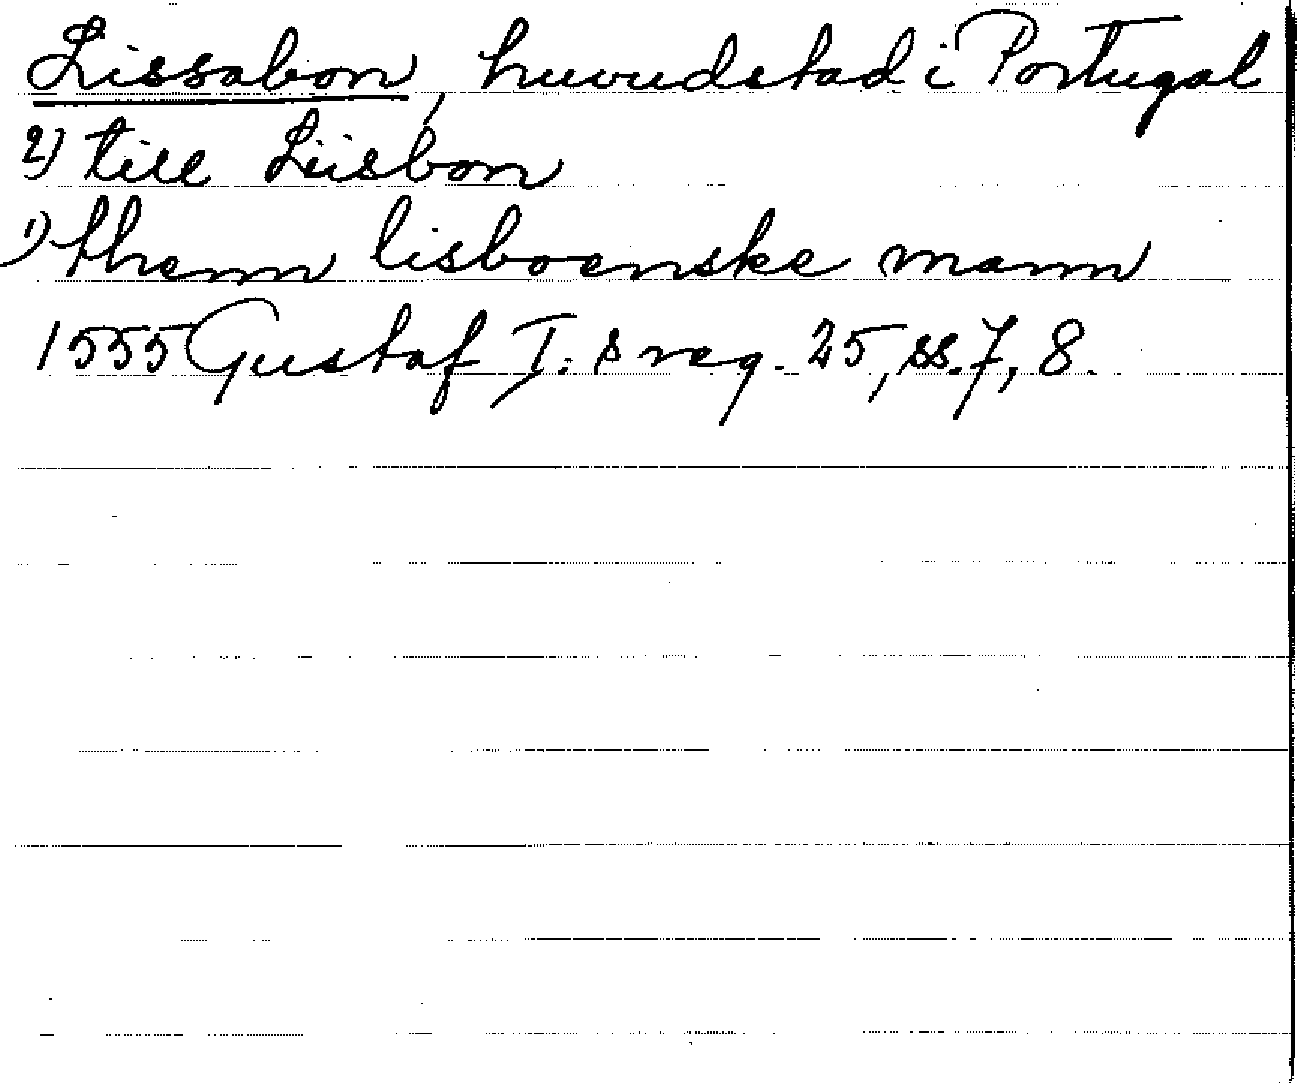 Lissabon, huvudstad i Portugal
2) till Liisbon
1) thenn lisboenske mann
1555 Gustaf I:s reg. 25, ss. 7, 8.